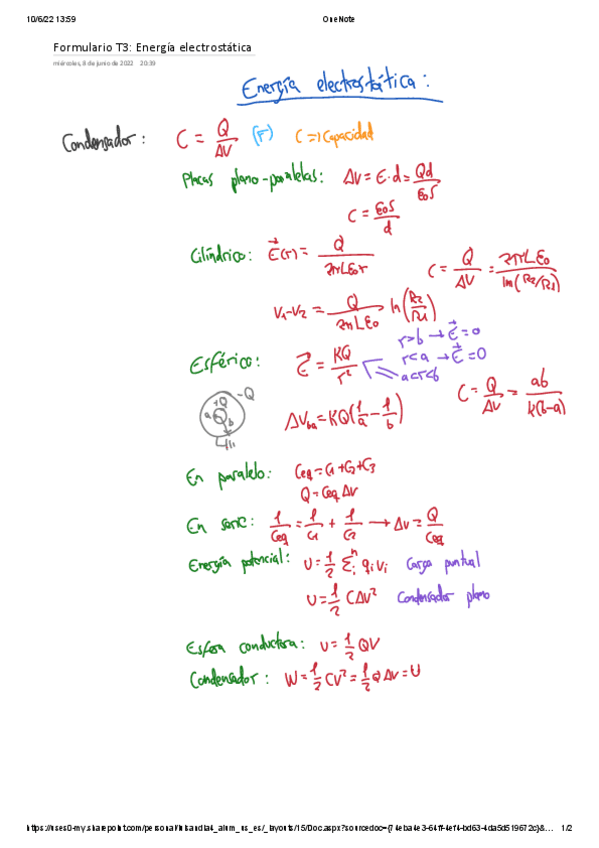 10/6/22 13:59
OneNote
Formulario T3: Energía electrostática
miércoles, 8 de junio de 2022 20:39
Energía electrostática:
Condensador: C = Q/ΔV (F) C => Capacidad
Placas plano-paralelas: ΔV = E·d = Qd/ε0S
C = ε0S/d
Cilíndrico: E⃗(r) = Q/2πLε0r
C = Q/ΔV = 2πLε0/ln(R2/R1)
V1-V2 = Q/2πLε0 ln(R2/R1)
Esférico: E⃗ = KQ/r²
r>b → E⃗=0
r<a → E⃗=0
a<r<b
C = Q/ΔV = ab/k(b-a)
+Q -Q
a b
ΔVba = KQ(1/a - 1/b)
En paralelo: Ceq = C1+C2+C3
Q = Ceq ΔV
En serie: 1/Ceq = 1/C1 + 1/C2 → ΔV = Q/Ceq
Energía potencial: U = 1/2 Σi^n qiVi Carga puntual
U = 1/2 CΔV² Condensador plano
Esfera conductora: U = 1/2 QV
Condensador: W = 1/2 CV² = 1/2 Q ΔV = U
1/2